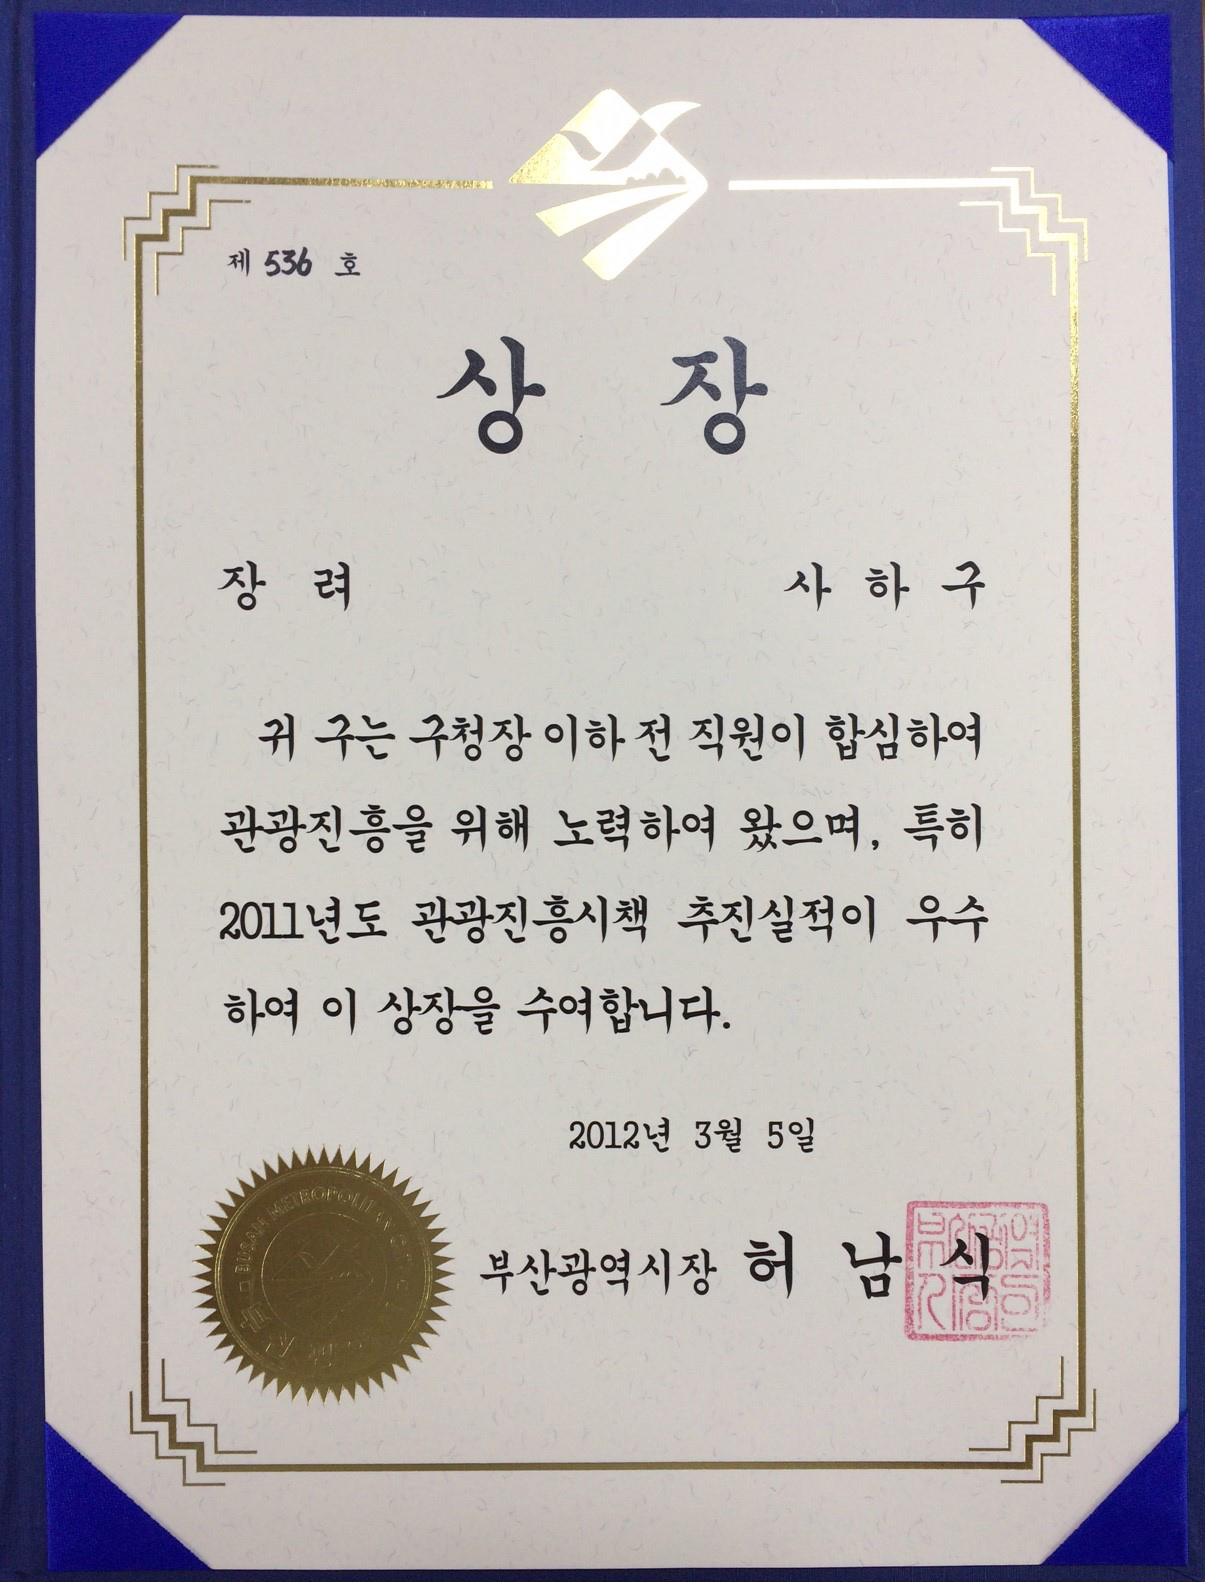 제 536 호
상 장
장 려
사 하 구
귀 구는 구청장 이하 전 직원이 합심하여
관광진흥을 위해 노력하여 왔으며, 특히
2011년도 관광진흥시책 추진실적이 우수
하여 이 상장을 수여합니다.
2012년 3월 5일
BUSAN METROPOLITAN CITY
부산광역시장 허 남 식